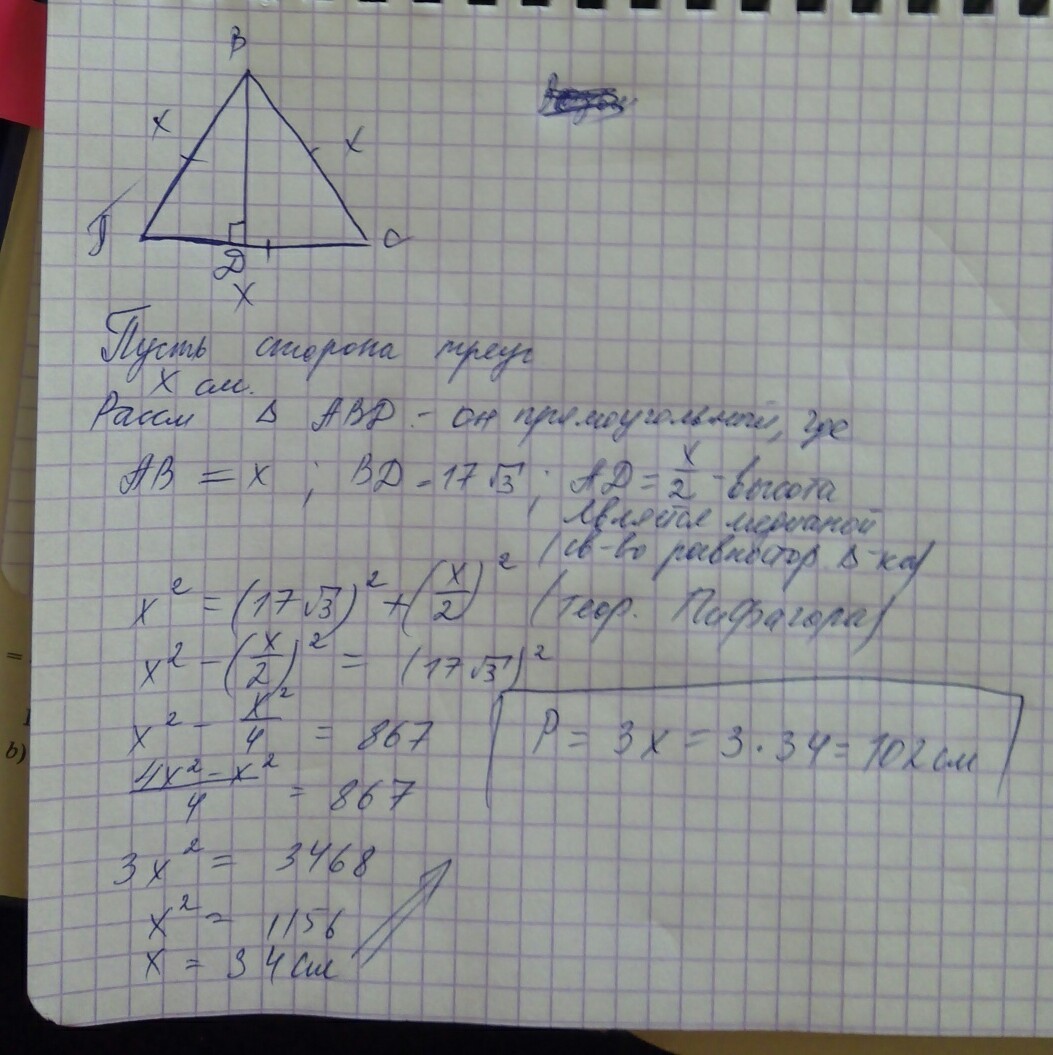 B
x
x
C
D
x
Пусть сторона треуг
x см.
Рассм Δ ABD - он прямоугольный, где
AB = x ; BD = 17√3 ; AD = x/2 - высота
является медианой
(св-во равностор. Δ-ка)
x² = (17√3)² + (x/2)² (теор. Пифагора)
x² - (x/2)² = (17√3)²
x² - x²/4 = 867
(4x² - x²)/4 = 867
3x² = 3468
x² = 1156
x = 34 см
P = 3x = 3 · 34 = 102 см
=
b)